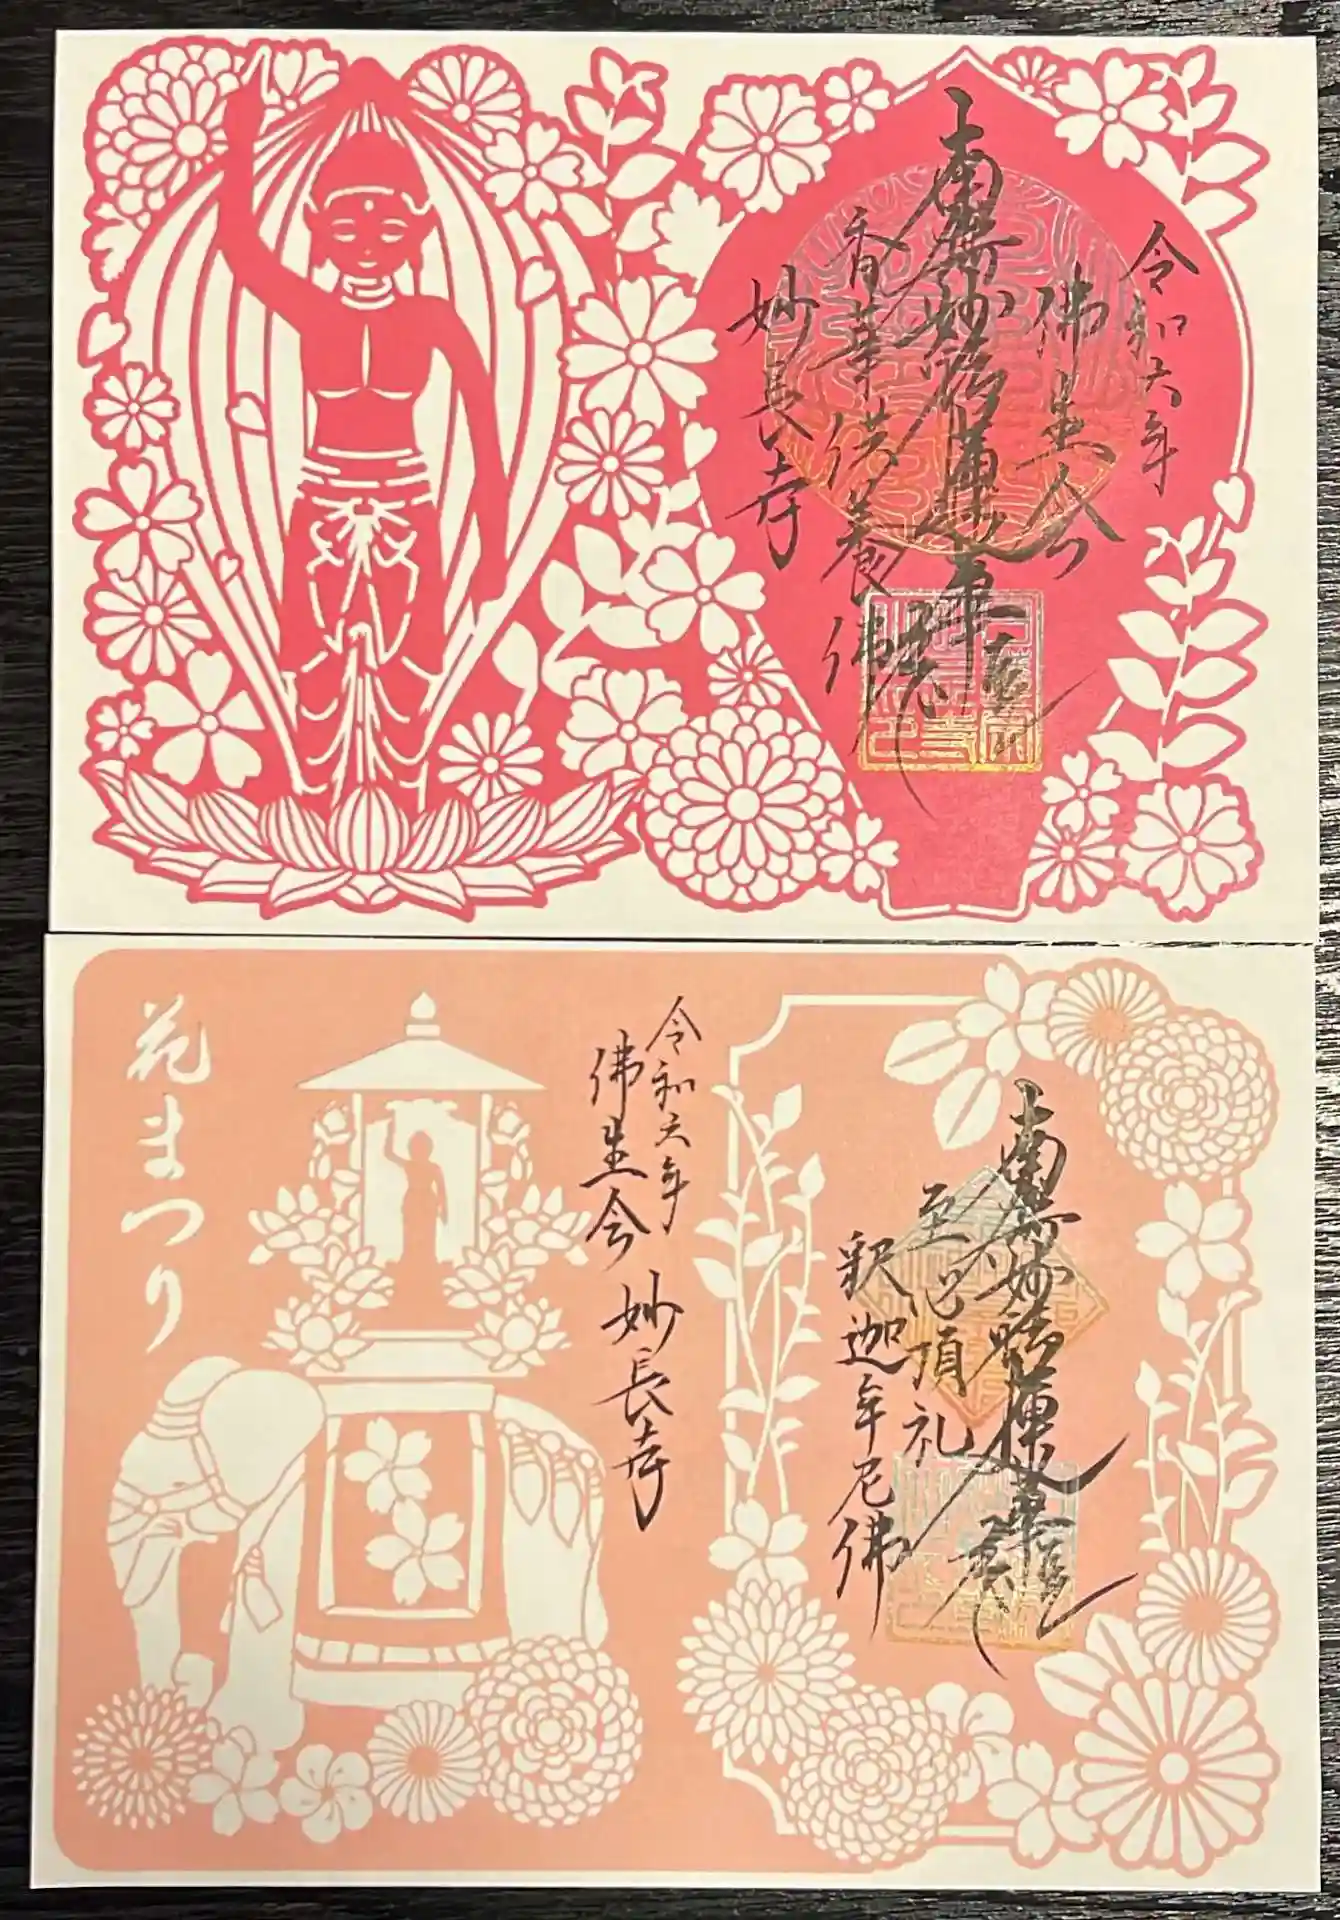 令和六年
佛生会
南無妙法蓮華経
香華供養佛
妙長寺
南無妙法蓮華経
至心頂礼
釈迦牟尼佛
令和六年
佛生会 妙長寺
花まつり